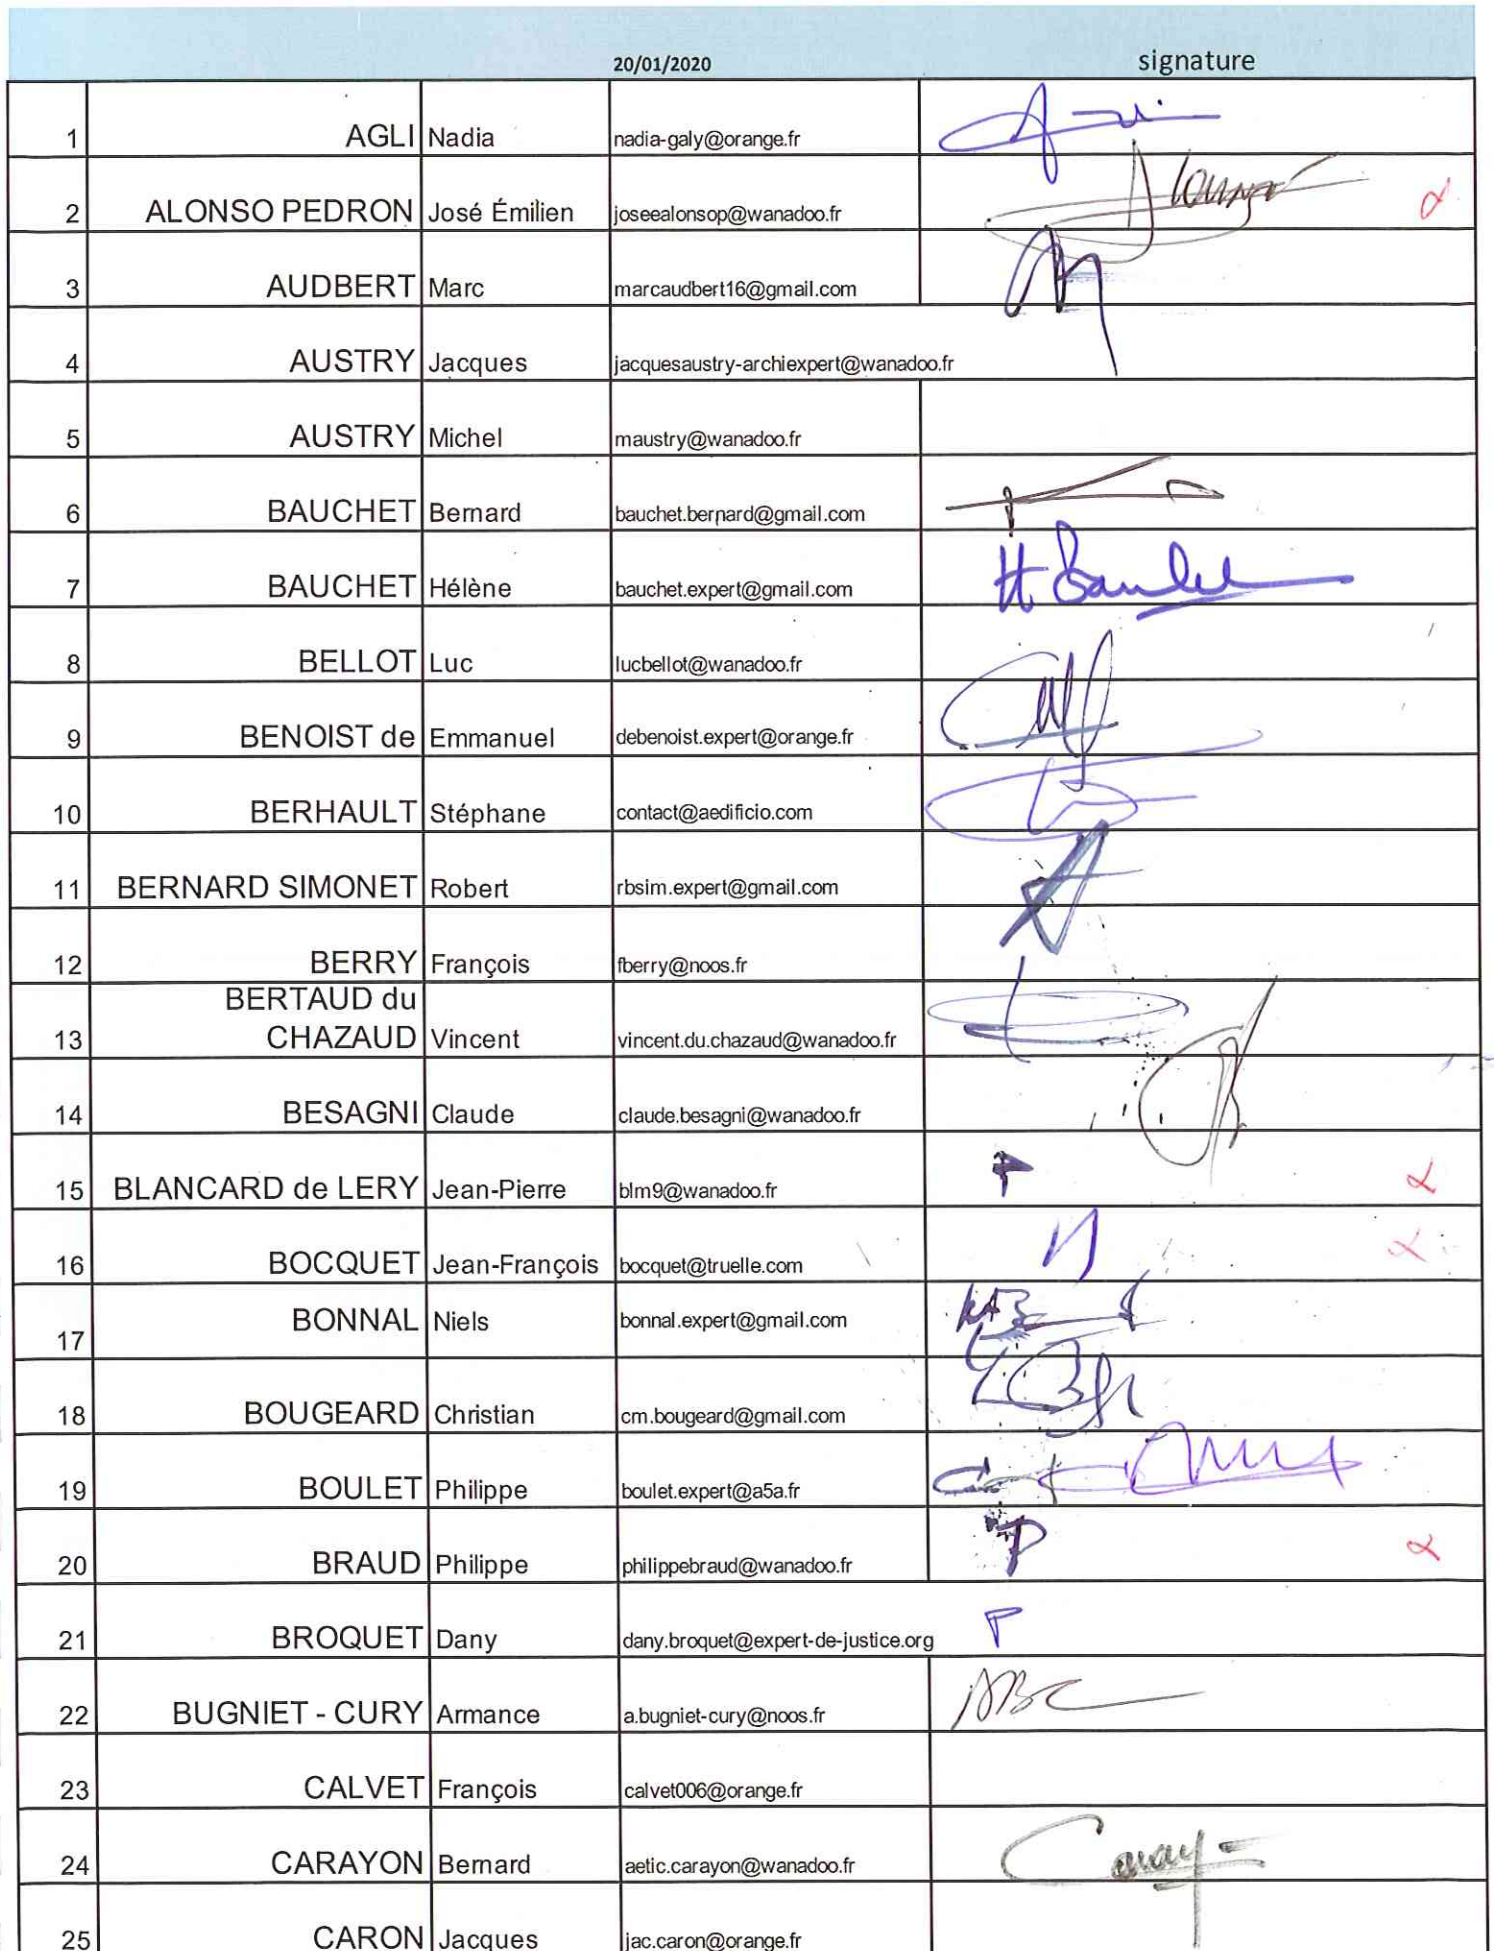 20/01/2020 signature
1 AGLI Nadia nadia-galy@orange.fr
2 ALONSO PEDRON José Émilien joseealonsop@wanadoo.fr
3 AUDBERT Marc marcaudbert16@gmail.com
4 AUSTRY Jacques jacquesaustry-archiexpert@wanadoo.fr
5 AUSTRY Michel maustry@wanadoo.fr
6 BAUCHET Bernard bauchet.bernard@gmail.com
7 BAUCHET Hélène bauchet.expert@gmail.com
8 BELLOT Luc lucbellot@wanadoo.fr
9 BENOIST de Emmanuel debenoist.expert@orange.fr
10 BERHAULT Stéphane contact@aedificio.com
11 BERNARD SIMONET Robert rbsim.expert@gmail.com
12 BERRY François fberry@noos.fr
BERTAUD du
13 CHAZAUD Vincent vincent.du.chazaud@wanadoo.fr
14 BESAGNI Claude claude.besagni@wanadoo.fr
15 BLANCARD de LERY Jean-Pierre blm9@wanadoo.fr
16 BOCQUET Jean-François bocquet@truelle.com
17 BONNAL Niels bonnal.expert@gmail.com
18 BOUGEARD Christian cm.bougeard@gmail.com
19 BOULET Philippe boulet.expert@a5a.fr
20 BRAUD Philippe philippebraud@wanadoo.fr
21 BROQUET Dany dany.broquet@expert-de-justice.org
22 BUGNIET - CURY Armance a.bugniet-cury@noos.fr ABC
23 CALVET François calvet006@orange.fr
24 CARAYON Bernard aetic.carayon@wanadoo.fr
25 CARON Jacques jac.caron@orange.fr